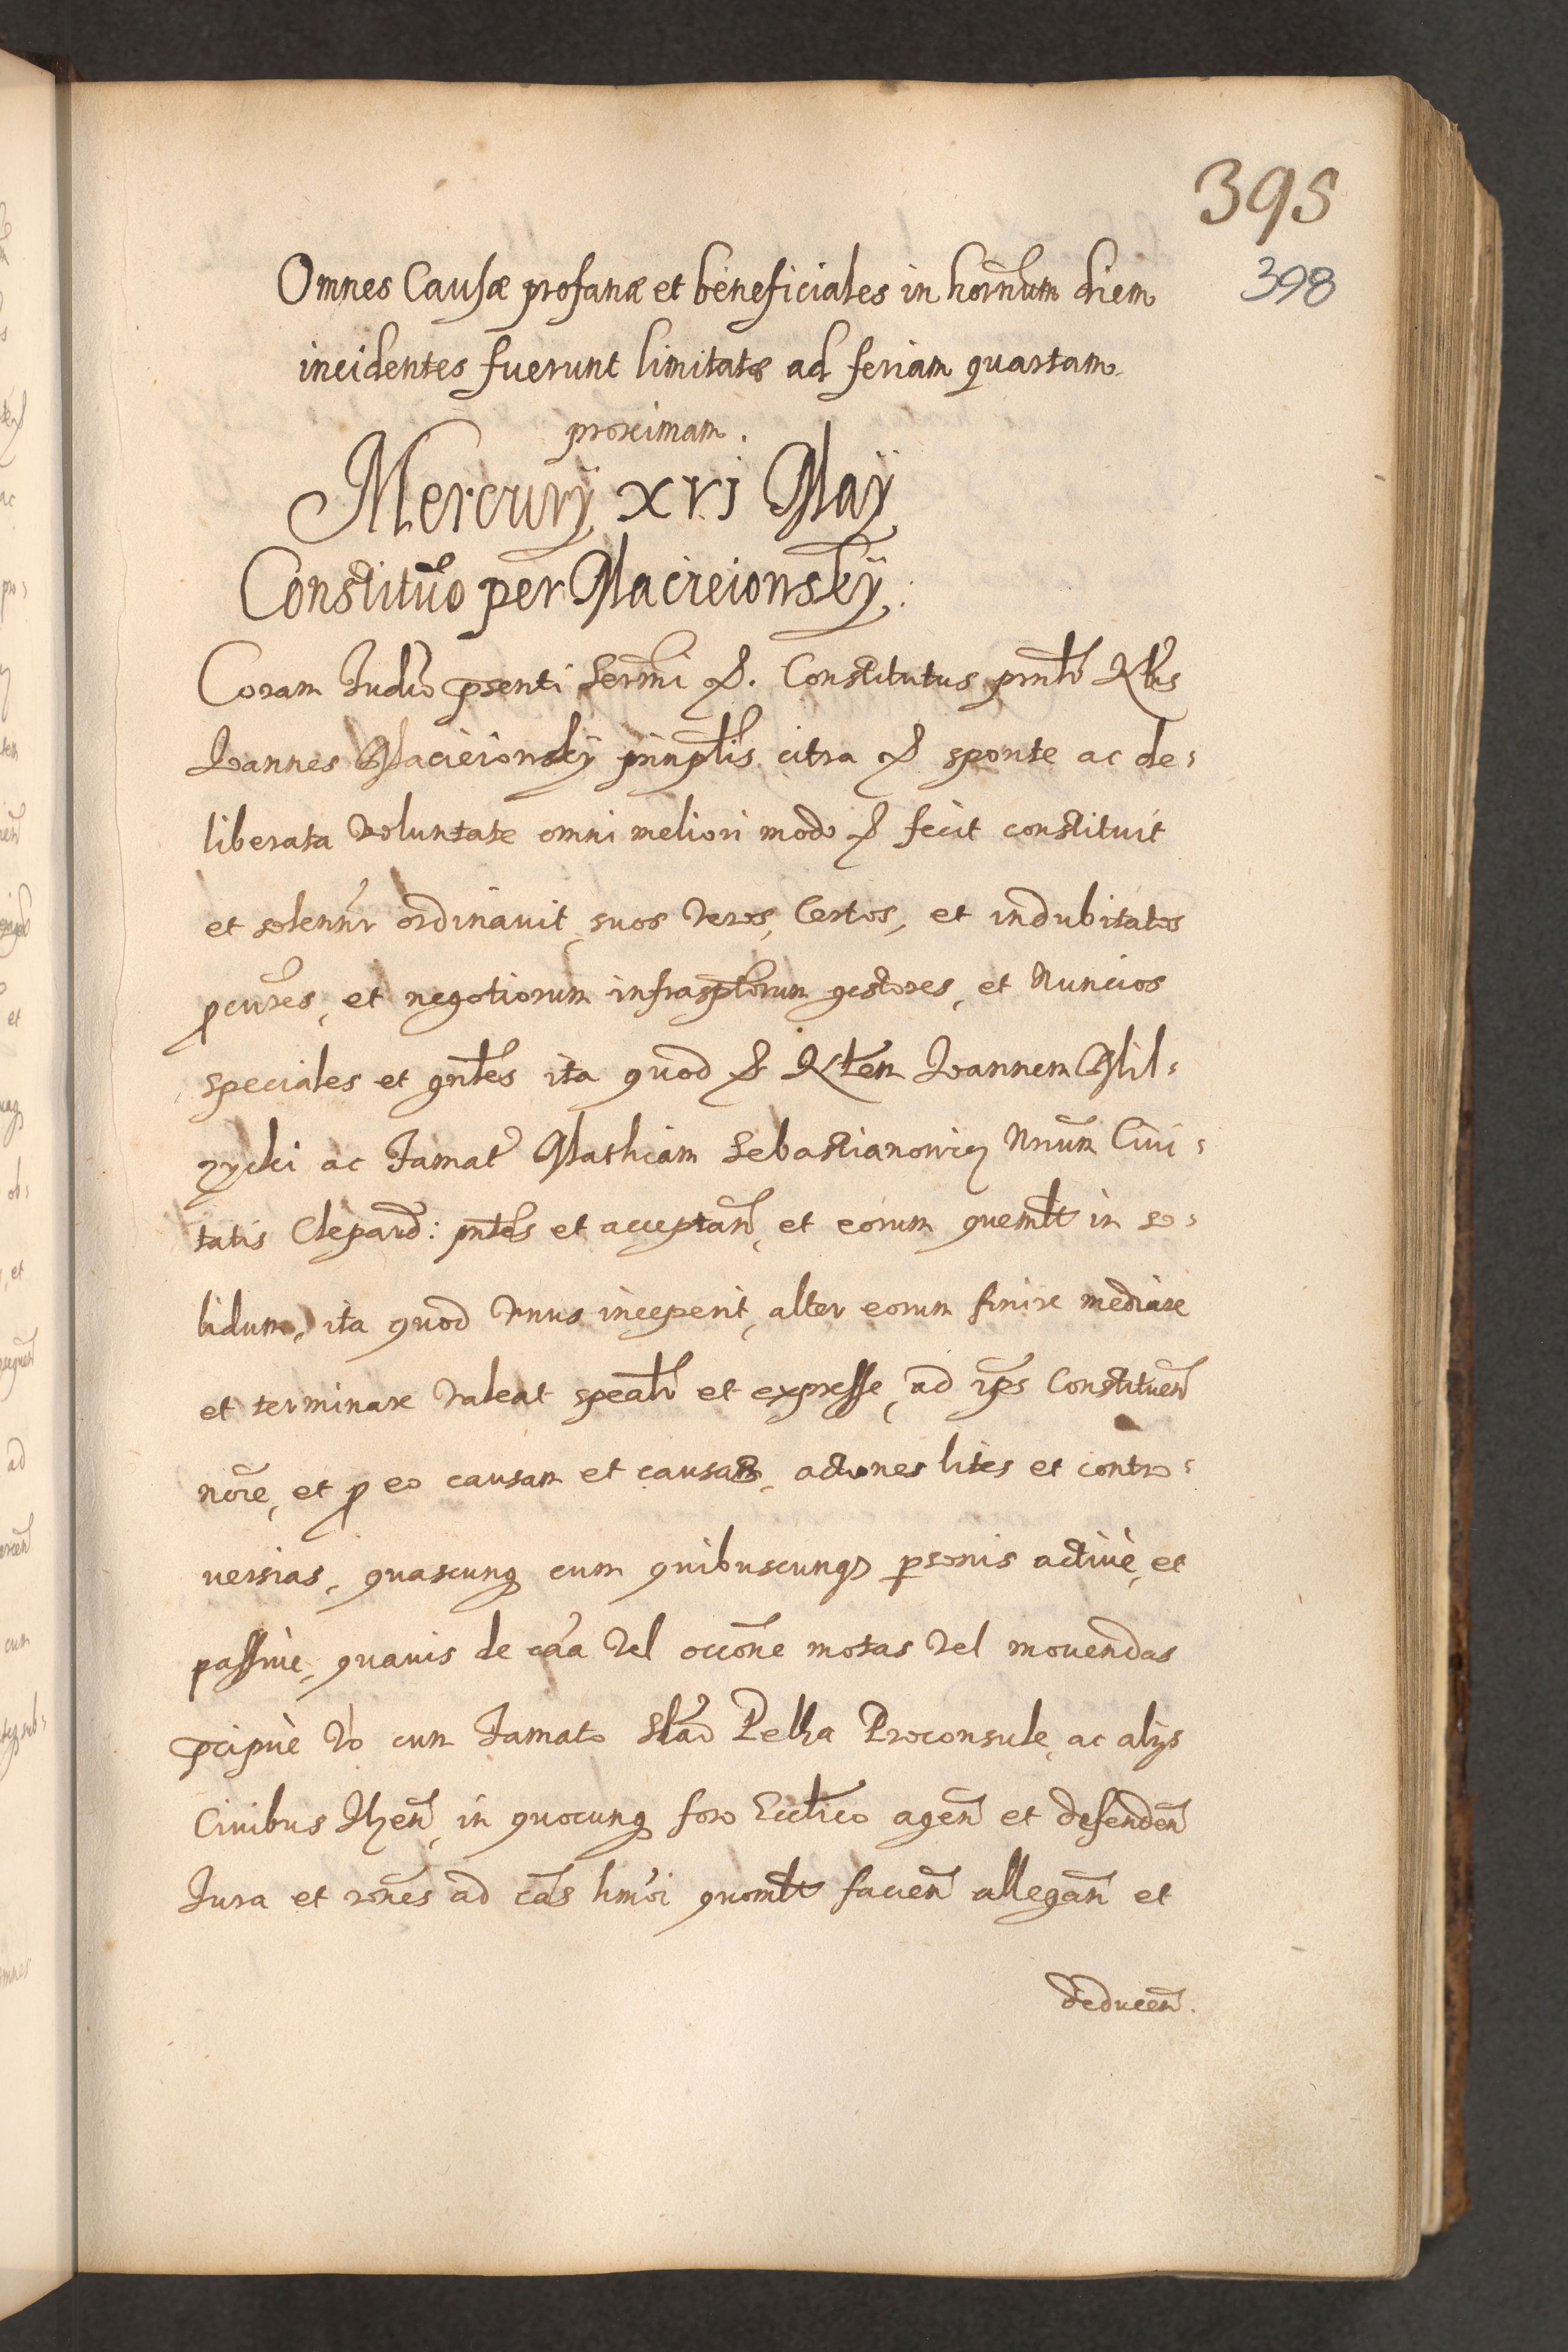 395
398
Omnes Causæ profanæ et beneficiales in horñum diem
incidentes fuerunt limitatæ ad feriam quartam
proximam.
Mercurÿ xvj Maÿ
Constituõ per Macieionskÿ.
Coram Judõ psenti Sermi &. Constitutus
Joannes Macieionskÿ prinplis citra & sponte ac de=
liberata voluntate omni meliori modo & fecit constituit
et solennr ordinauit, suos veros, certos, et indubitatos
pcures, et negotiorum infrasptorum gestores, et Nuncios
speciales et gntes ita quod & Joannem Mil=
zycki ac Famat Mathiam Sebastianowicz Nrium Ciui=
tatis Clepard: pntes et acceptan, et eorum quemlt in so=
lidum, ita quod vnus inceperit, alter eorum finire mediare
et terminare valeat spealr et expresse, ad ips Constituen
noie, et p eo causam et causas, actiones lites et contro=
uersias, quascunq cum quibuscunq psonis actiuè, et
passiuè, quauis de caa vel occone motas vel mouendas
pcipuè vo cum Famato Pelka Proconsule, ac alijs
Ciuibus in quocunq foro Ecclico agen et defenden
Jura et rones ad cas hmoi quomlt facien allegan et
deducen.